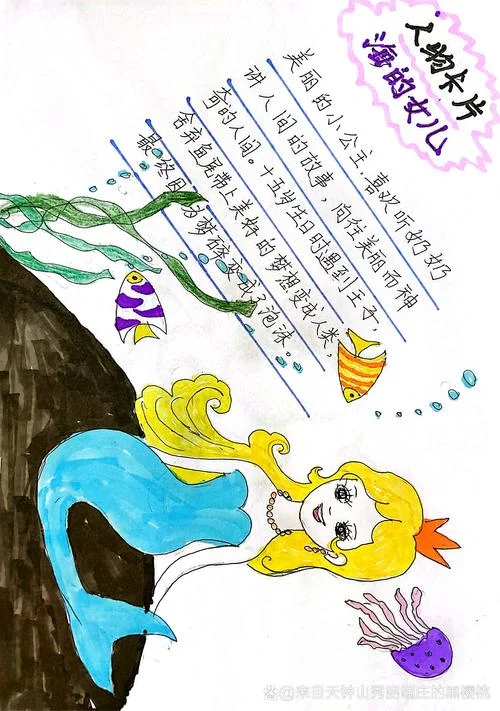 人物卡片
海的女儿
美丽的小公主,喜欢听奶奶
讲人间的故事,向往美丽而神
奇的人间。十五岁生日时遇到王子,
舍弃鱼尾带上美好的梦想变成人类,
最终因为梦碎变成了泡沫。
@来自天钟山秀丽端庄的黑樱桃